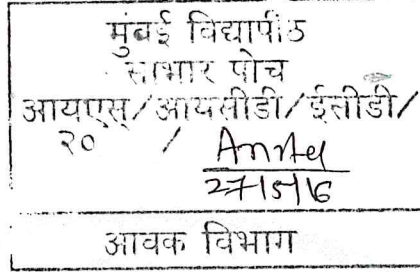 मुंबई विद्यापीठ
साभार पोच
आयएस/आयसीडी/ईसीडी/
२० /
27/5/16
आवक विभाग